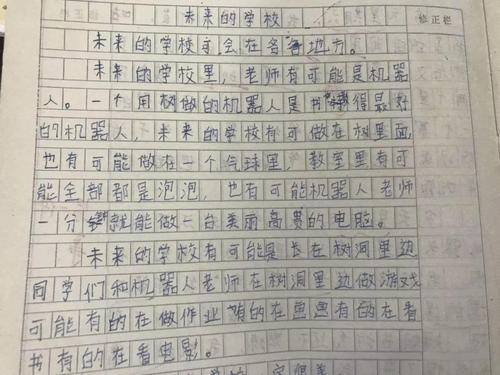 未来的学校
修正栏
未来的学校可会在各各地方。
未来的学校里，老师有可能是机器
人。一个用树做的机器人是书得最好
的机器人，未来的学校有可做在树里面，
也有可能做在一个气球里，教室里有可
能全部都是泡泡，也有可能机器人老师
一分就能做一台美丽高贵的电脑。
未来的学校有可能是长在树洞里边
同学们和机器人老师在树洞里边做游戏
可能有的在做作业有的在画画有的在看
书有的在看电影。